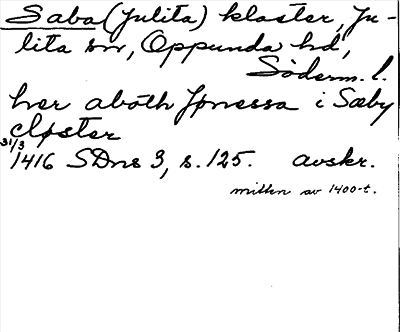 Saba (Julita) kloster, Ju-
lita sn, Oppunda hd,
Söderm. l.
her aboth Jønessa i Sæby
closter
31/3
1416 SDns 3, s. 125. avskr.
mitten av 1400-t.